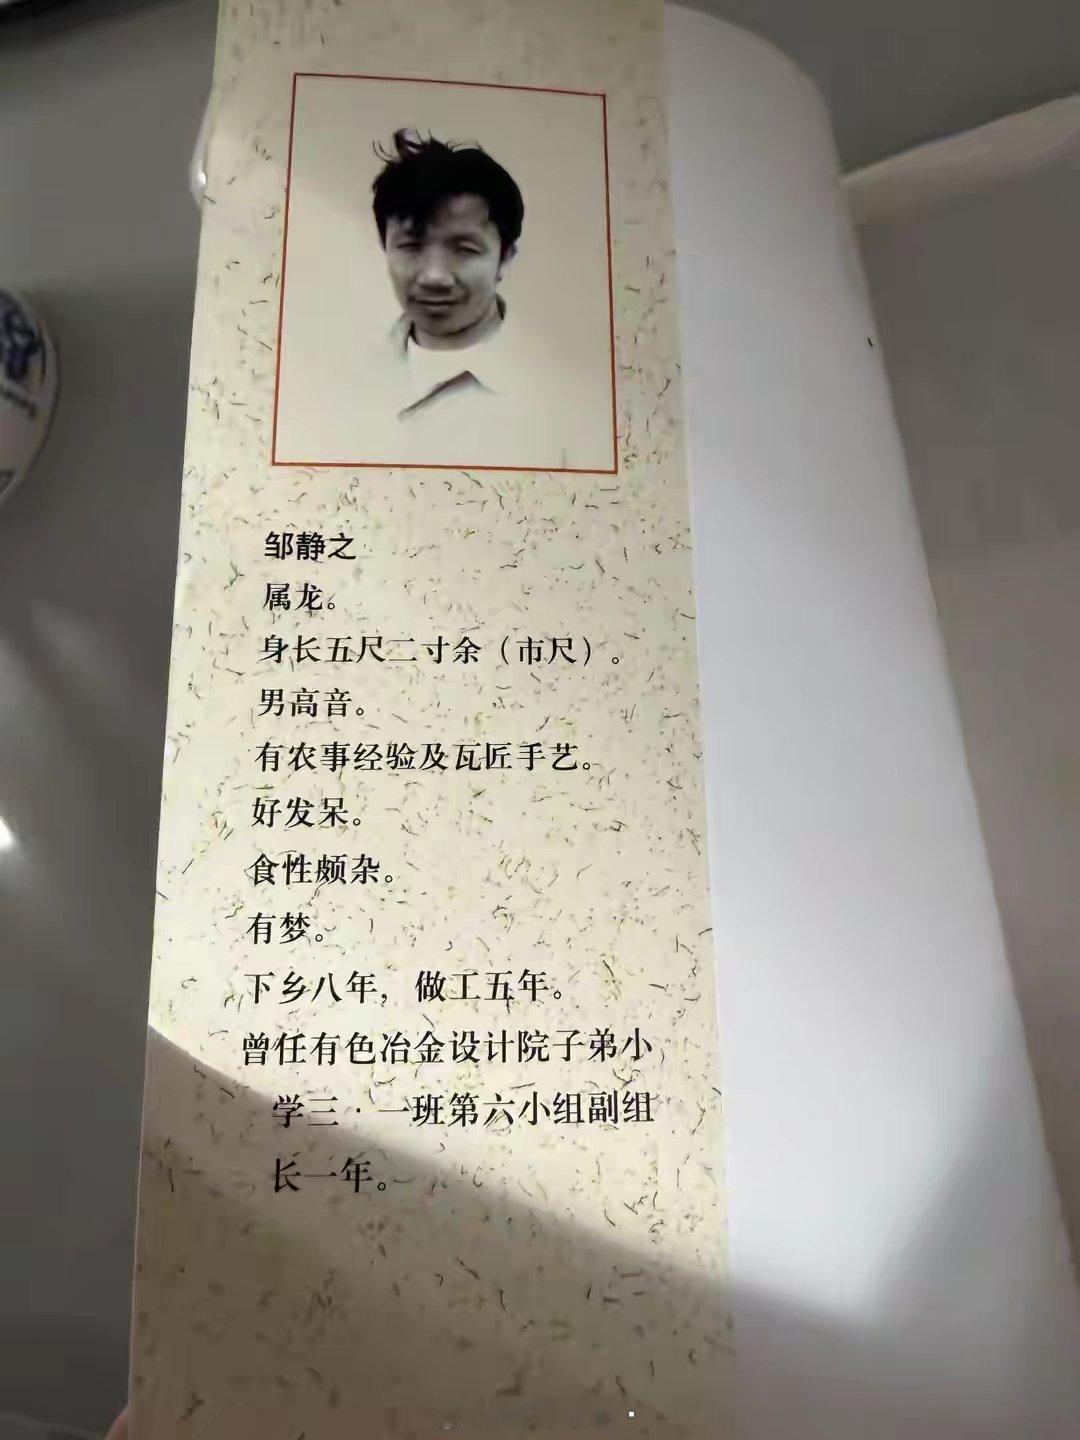 邹静之
属龙。
身长五尺二寸余（市尺）。
男高音。
有农事经验及瓦匠手艺。
好发呆。
食性颇杂。
有梦。
下乡八年，做工五年。
曾任有色冶金设计院子弟小
学三·一班第六小组副组
长一年。